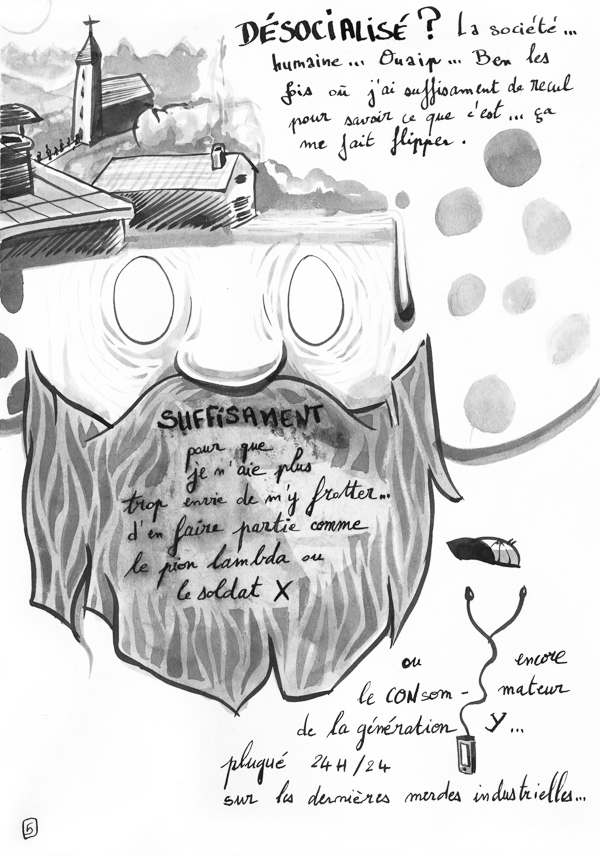 DÉSOCIALISÉ ? La société...
humaine... Ouaip... Ben les
fois où j'ai suffisament de recul
pour savoir ce que c'est... ça
me fait flipper.
SUFFISAMENT
pour que
je n'aie plus
trop envie de m'y frotter...
d'en faire partie comme
le pion lambda ou
le soldat X
ou encore
le CONsom- mateur
de la génération Y...
plugué 24H/24
sur les dernières merdes industrielles...
5